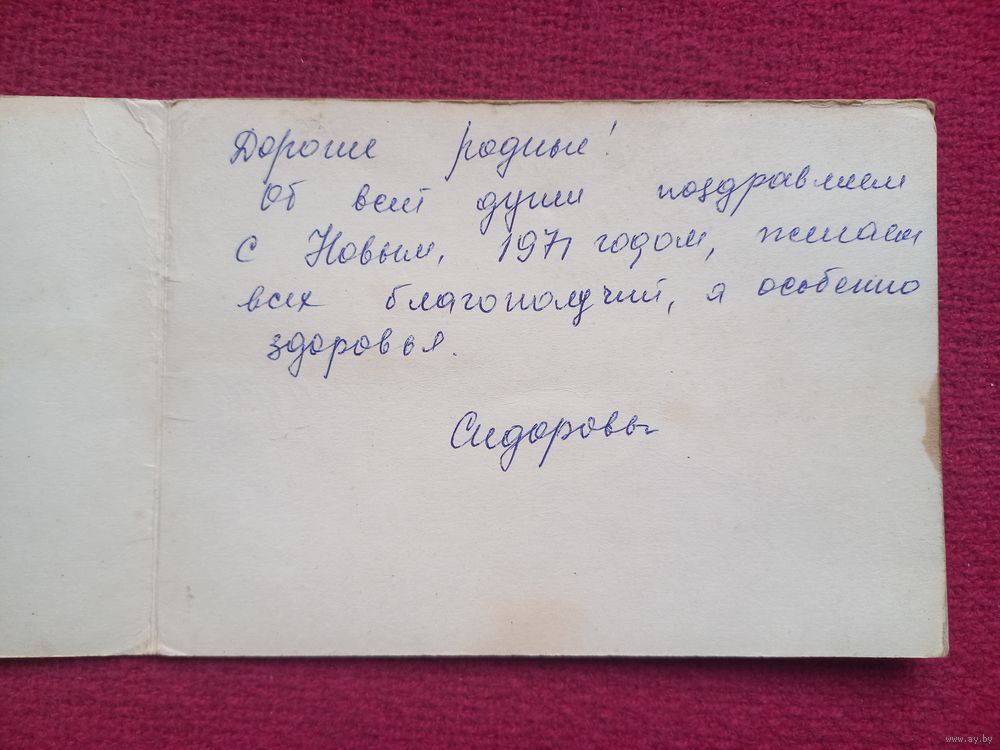 Дорогие родные!
От всей души поздравляем
с Новым, 1971 годом, желаем
всех благополучий, а особенно
здоровья.
Сидоровы
www.ay.by